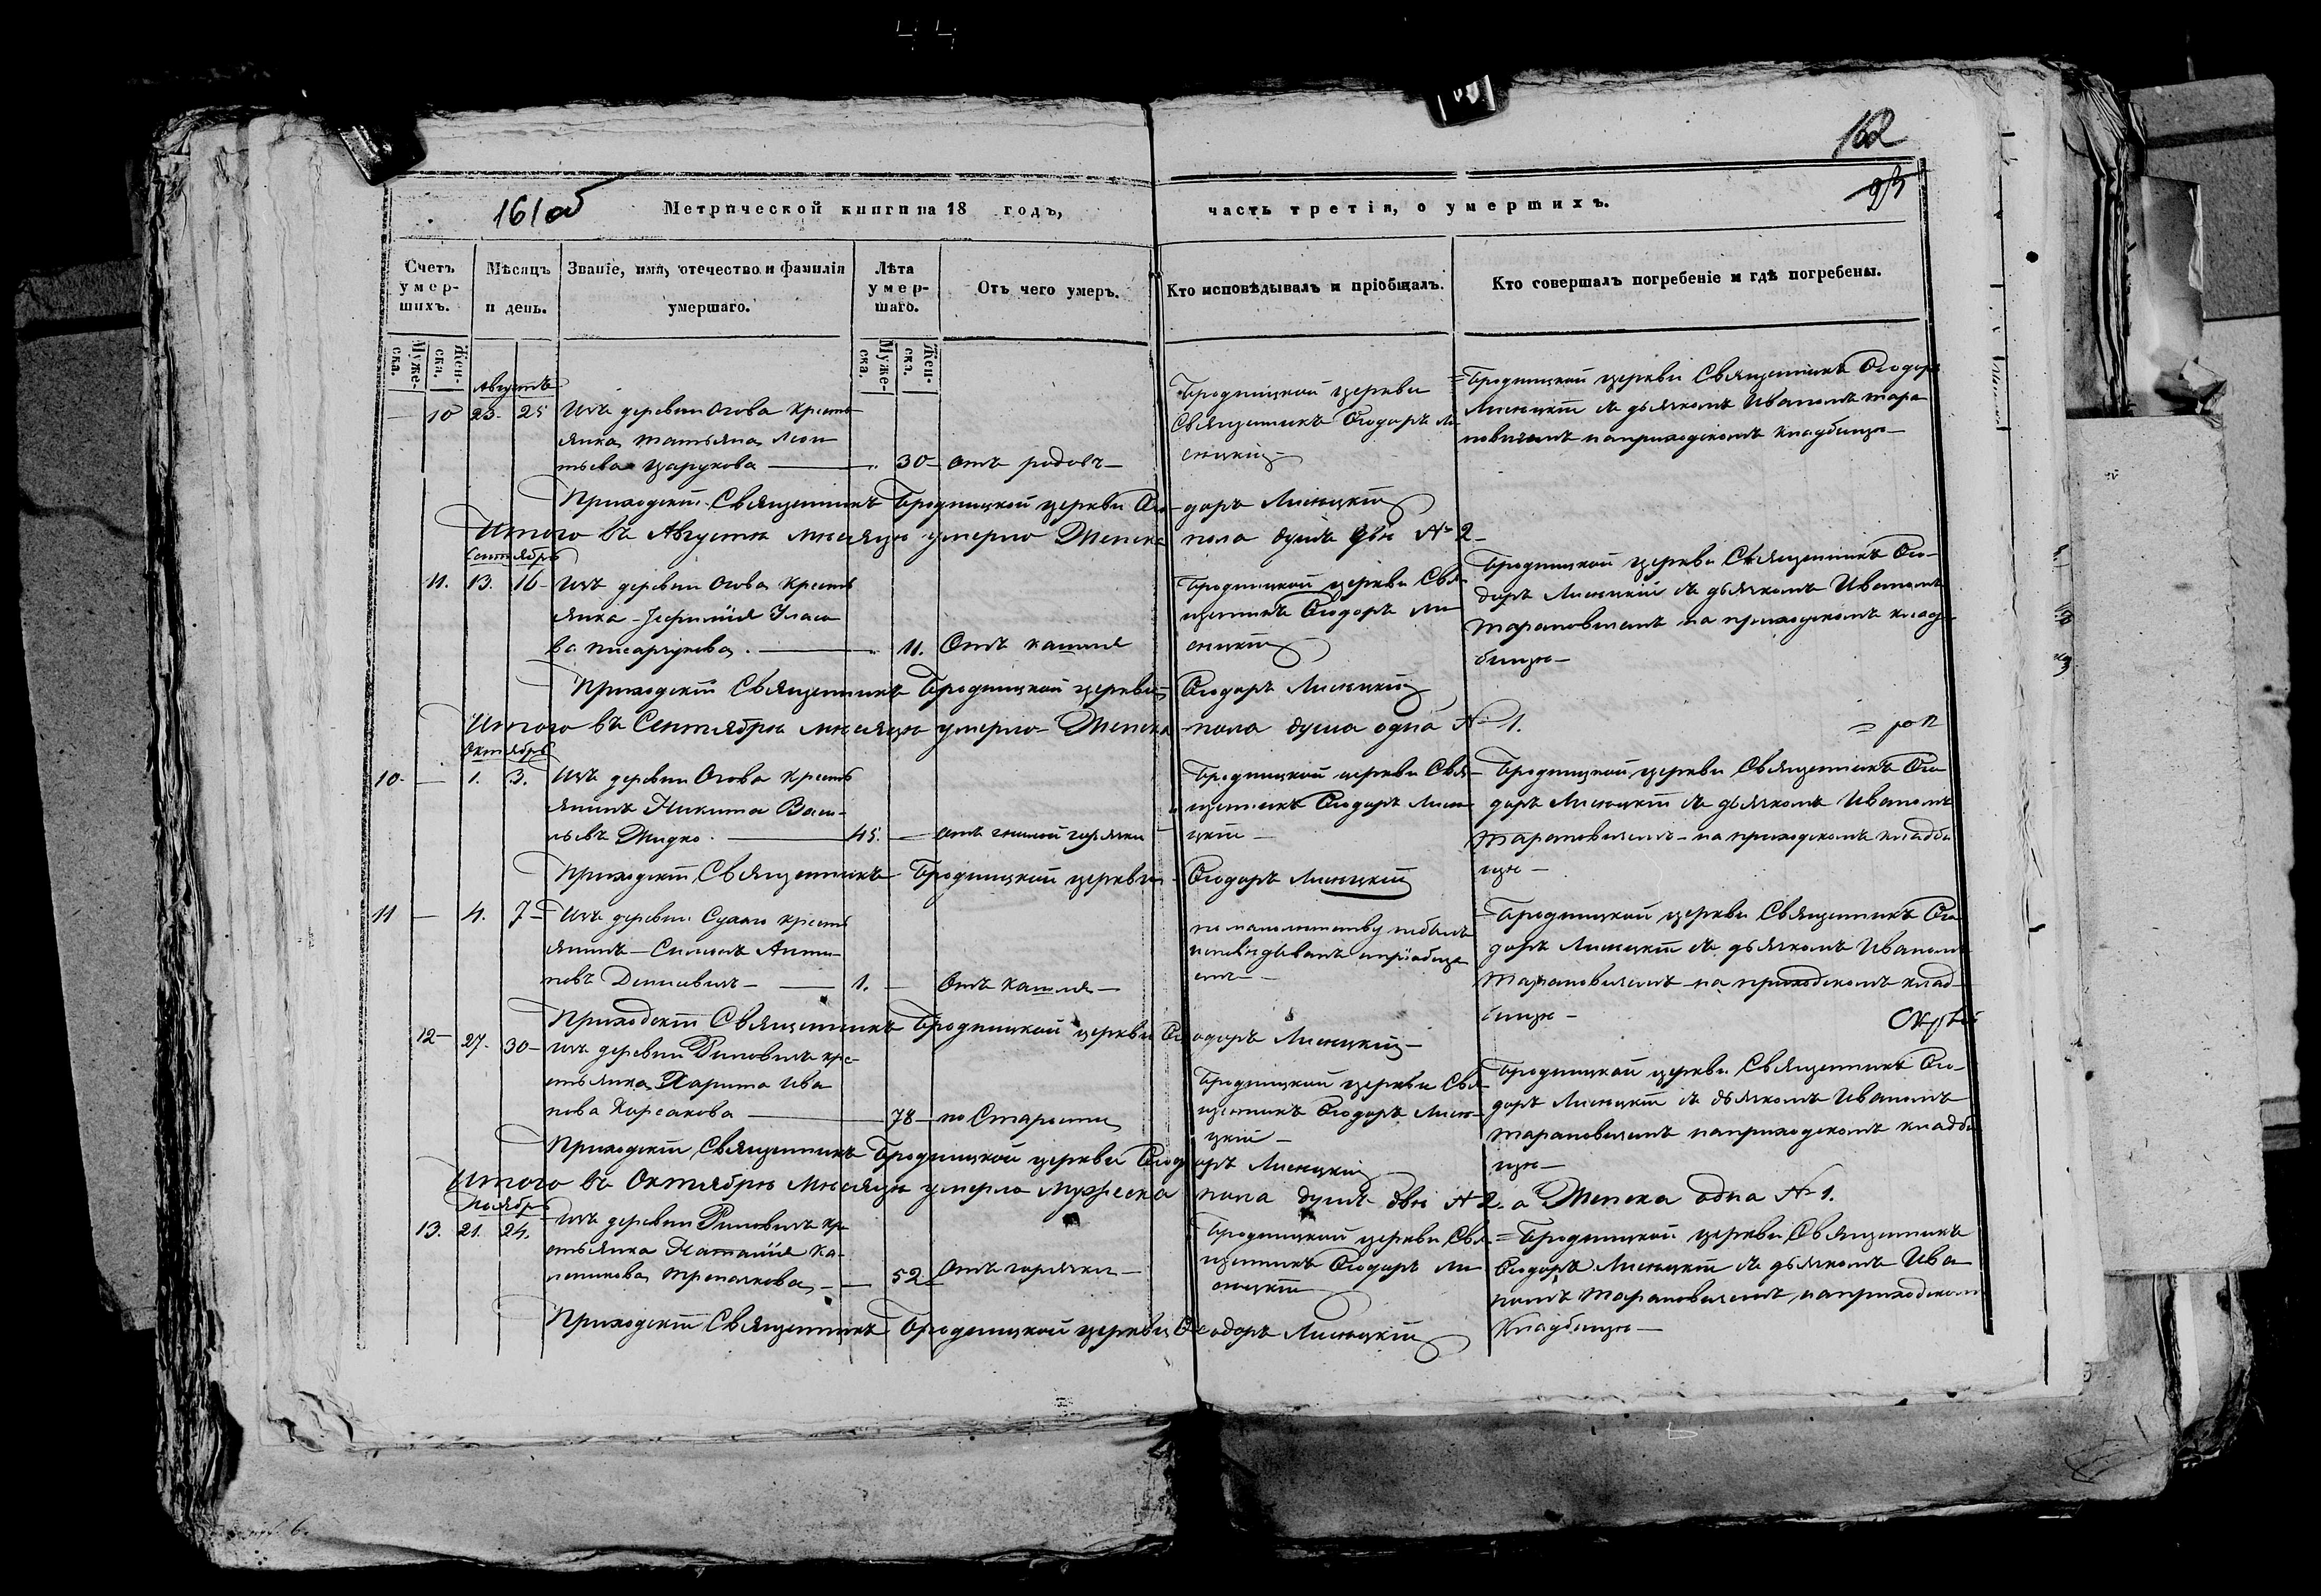 44
162
93
161об
Метрической книги на 18 годъ,
часть третія, о умершихъ.
Счетъ умер-шихъ.
Мѣсяцъ и день.
Званіе, имя, отечество и фамилія умершаго.
Лѣта умер-шаго.
Отъ чего умеръ.
Кто исповѣдывалъ и пріобщалъ.
Кто совершалъ погребеніе и гдѣ погребены.
Муже-ска.
Жен-ска.
Муже-ска.
Жен-ска.
Августъ
— 10 23. 25 Изъ деревни Огова кресть
янка Татьяна Леон
тьева Царукова — 30 — отъ родовъ —
Бродницкой церкви
Священникъ Ѳеодоръ Ли
сицкій
Бродницкой церкви Священникъ Ѳеодоръ
Лисицкій съ дьячкомъ Иваномъ Тара
новичемъ на приходскомъ кладбищѣ —
Приходскій Священникъ Бродницкой церкви Ѳео-
доръ Лисицкій
Итого въ Августѣ мѣсяцѣ умерло Женска
пола душъ двѣ № 2
Сентябрь
11. 13. 16 — Изъ деревни Огова кресть
янка Евфимія Власо
ва Писарчукова. — 11. Отъ кашля
Бродницкой церкви Свя
щенникъ Ѳеодоръ Ли
сицкій
Бродницкой церкви Священникъ Ѳео-
доръ Лисицкій съ дьячкомъ Иваномъ
Тарановичемъ на приходскомъ клад
бищѣ —
Приходскій Священникъ Бродницкой церкви
Ѳеодоръ Лисицкій
Итого въ Сентябрѣ мѣсяцѣ умерло Женска
пола душа одна № 1.
Октябрь
10. — 1. 3. Изъ деревни Огова кресть
янинъ Никита Васи-
льевъ Жидко. — 45. — отъ гнилой горячки
Бродницкой церкви Свя-
щенникъ Ѳеодоръ Лиси
цкій —
Бродницкой церкви Священникъ Ѳео
доръ Лисицкій съ дьячкомъ Иваномъ
Тарановичемъ — на приходскомъ кладби
щѣ —
Приходскій Священникъ Бродницкой церкви
Ѳеодоръ Лисицкій
11 — 4. 7 — Изъ деревни Сухаго кресть
янинъ — Симонъ Анто-
новъ Денисевичъ — 1. — Отъ кашля —
по малолѣтству не былъ
исповѣдыванъ и пріобще
енъ —
Бродницкой церкви Священникъ Ѳео
доръ Лисицкій съ дьячкомъ Иваномъ
Тарановичемъ на приходскомъ клад
бищѣ —
Приходскій Священникъ Бродницкой церкви Ѳе
одоръ Лисицкій —
12 — 27. 30 — Изъ деревни Гиновичъ кре-
стьянка Харита Ива
нова Корсакова — 78 — по Старости
Бродницкой церкви Свя
щенникъ Ѳеодоръ Лиси-
цкій —
Бродницкой церкви Священникъ Ѳео-
доръ Лисицкій съ дьячкомъ Иваномъ
Тарановичемъ на приходскомъ кладби
щѣ —
Приходскій Священникъ Бродницкой церкви Ѳеод
оръ Лисицкій
Итого въ Октябрѣ Мѣсяцѣ умерло мужеска
пола душъ двѣ № 2. а Женска одна № 1.
Ноябрь
13. 21. 24. Изъ деревни Гиновичъ кре
стьянка Наталія Ка-
 Треналкова — 52 — Отъ горячки —
Бродницкой церкви Свя
щенникъ Ѳеодоръ Ли
сицкій
Бродницкой церкви Священникъ
Ѳеодоръ Лисицкій съ дьячкомъ Ива
номъ Тарановичемъ, на приходскомъ
кладбищѣ —
Приходскій Священникъ Бродницкой церкви Ѳе
одоръ Лисицкій